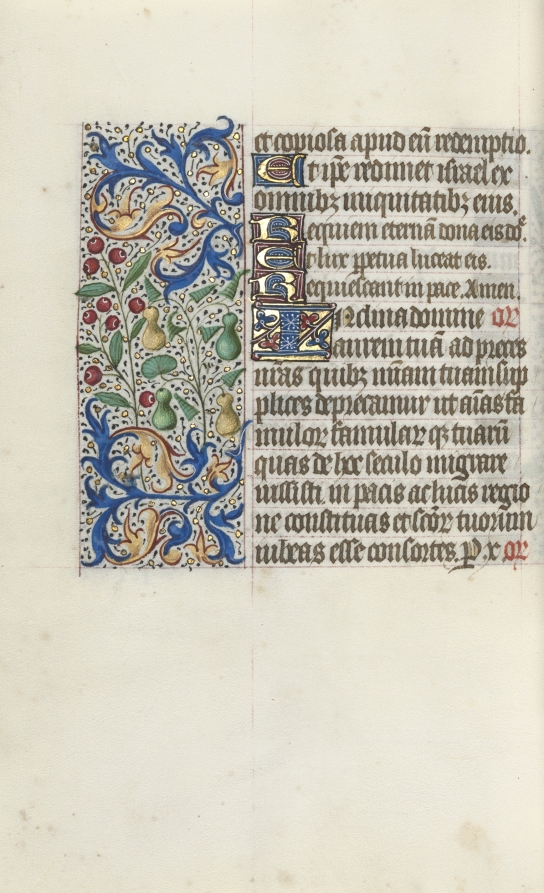 et copiosa apud eū redemptio.
Et ip̄e redimet israel ex
omnibꝫ iniquitatibꝫ eius.
Requiem eternā dona eis dn̄e.
Et lux ꝑpetua luceat eis.
Requiescant in pace. Amen.
Inclina domine or̄
aurem tuā ad preces
nr̄as quibꝫ mīam tuam sup
plices deprecamur ut aīas fa
muloꝝ famulaꝝ qꝫ tuarū
quas de hoc seculo migrare
iussisti in pacis ac lucis regio
ne constituas et scōꝝ tuorum
iubeas esse consortes. P. x or̄